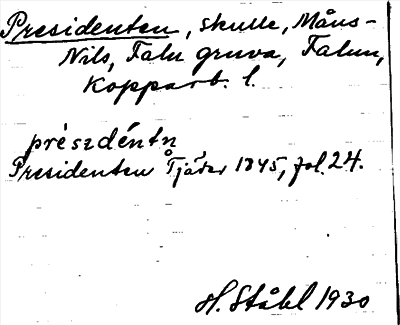 Presidenten, skulle, Måns-
Nils, Falu gruva, Falun,
Kopparb. l.
présıdéntn
Presidenten Tjäder 1845, fol. 24.
H. Ståhl 1930